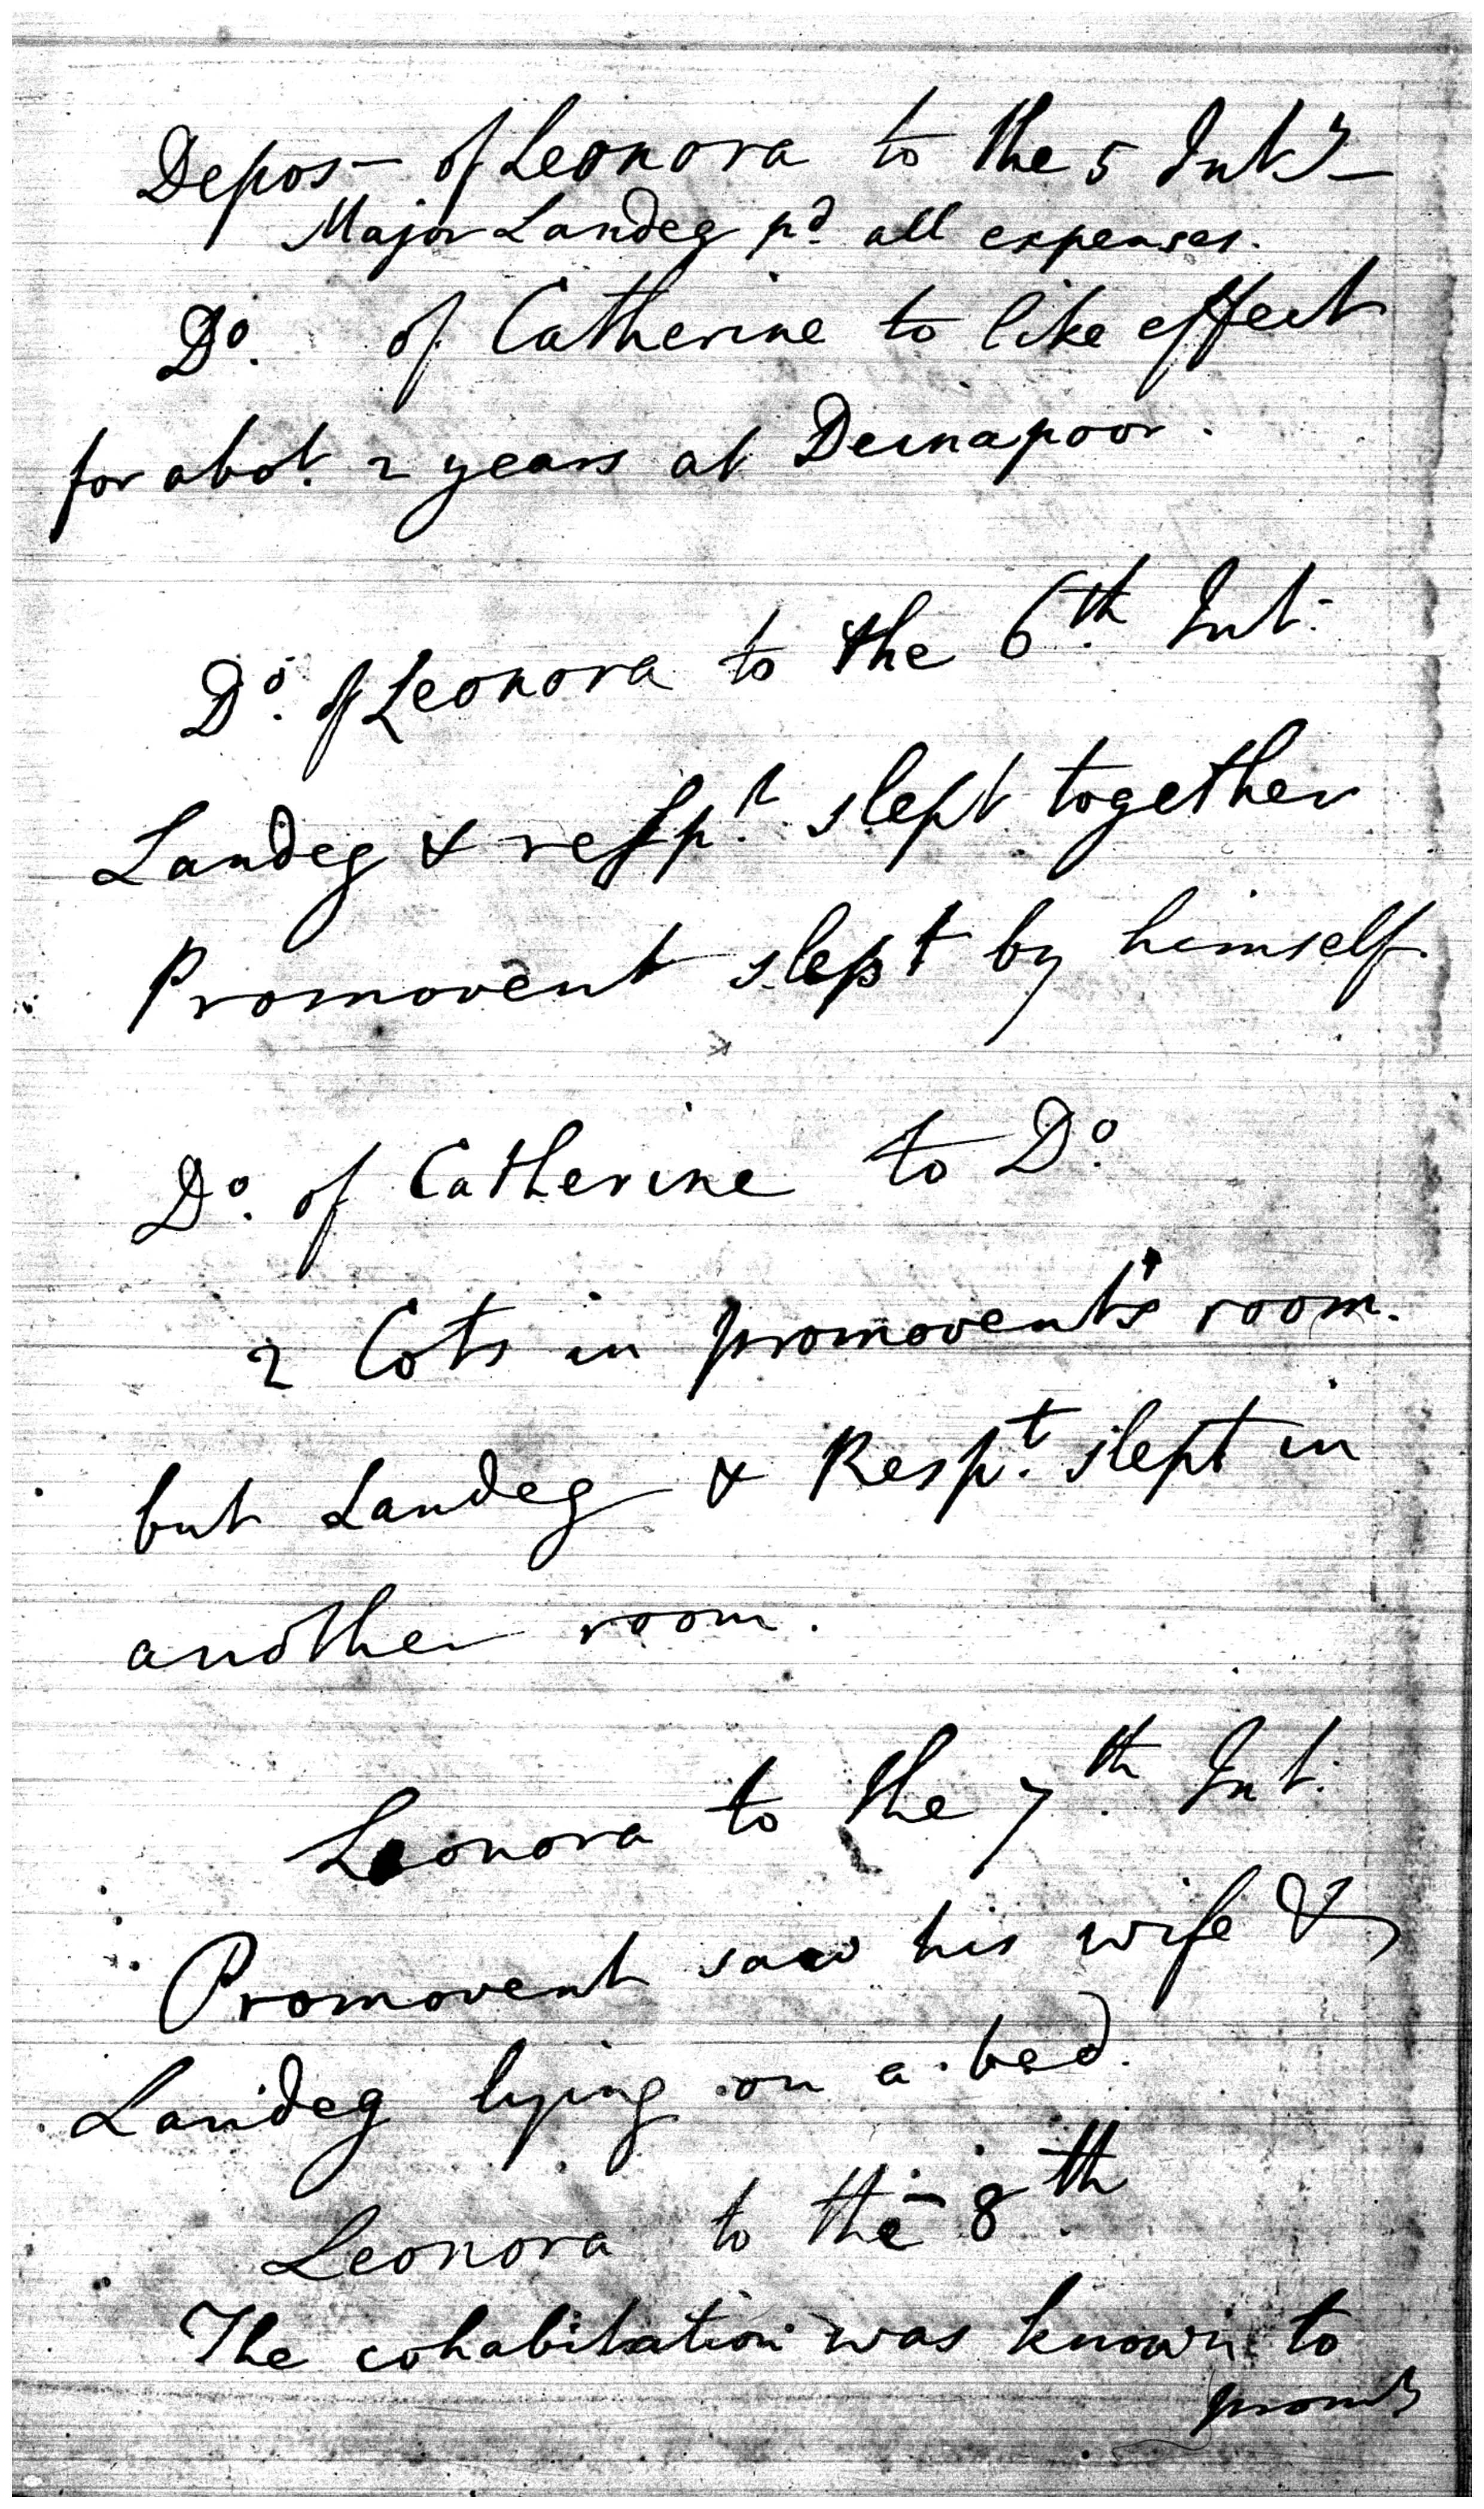 Depos— of Leonora to the 5 Inty—
Major Landeg pd. all expenses.
Do. of Catherine to like effect
for abot. 2 years at Deinapoor.
Do. of Leonora to the 6th. Int:
Landeg & respt. slept together
Promovent slept by himself.
Do. of Catherine to Do.
2 Cots in promovent's room.
but Landeg & Respt. slept in
another room.
Leonora to the 7th. Int:
Promovent saw his wife &
Landeg lying on a bed.
Leonora to the 8th.
The cohabitation was known to